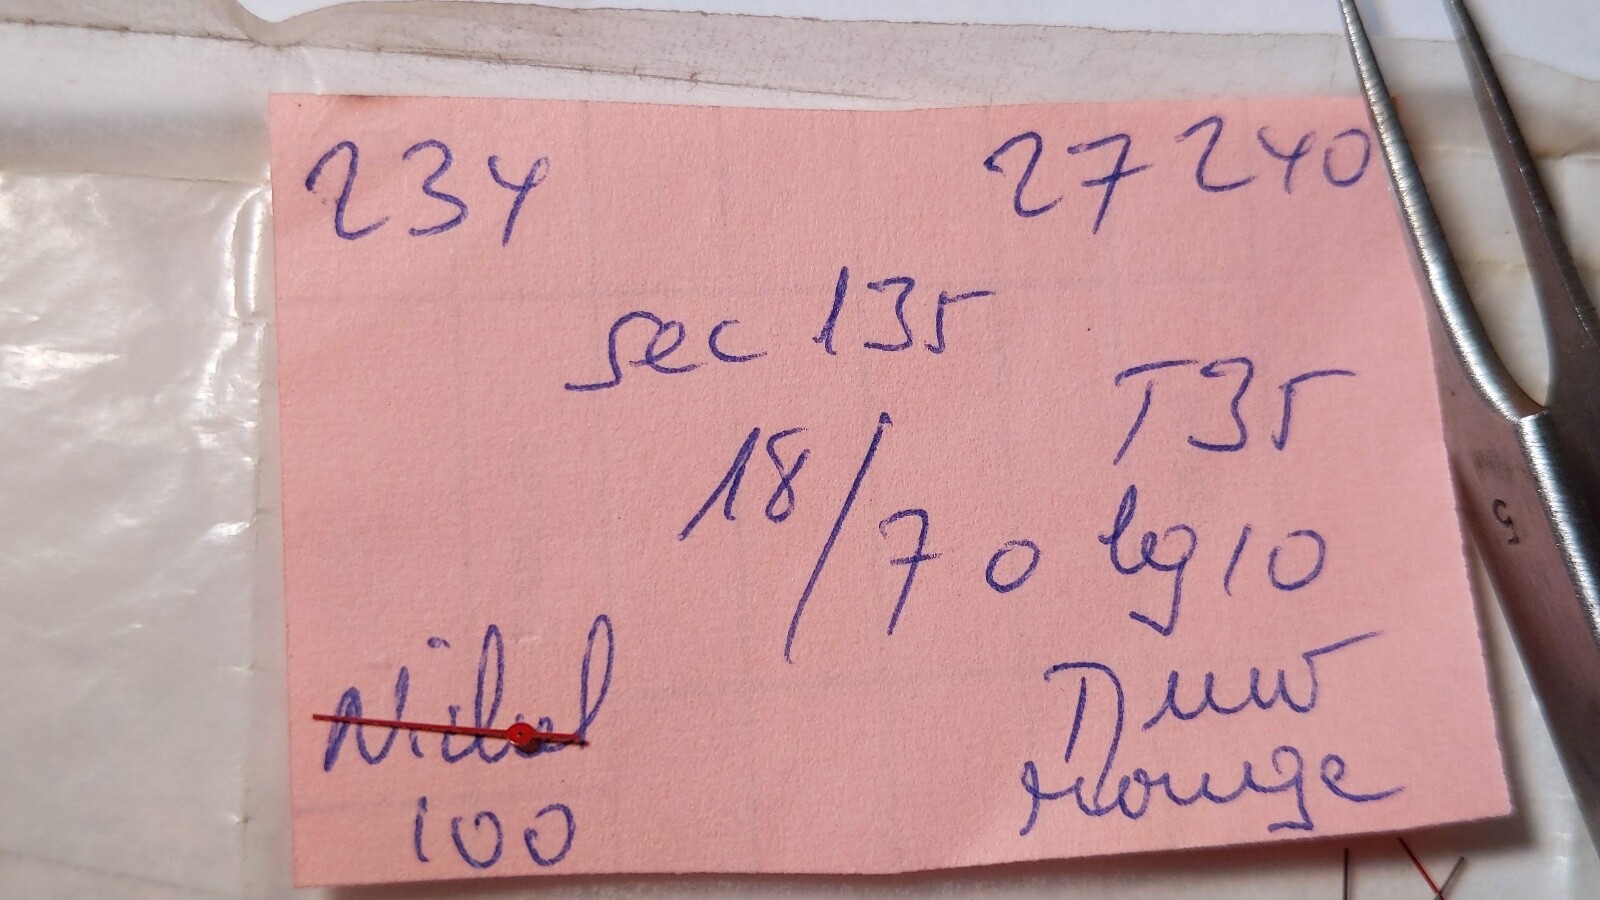 234 27240
sec 135
T35
18/70 lg 10
Nickel
100
rouge
5